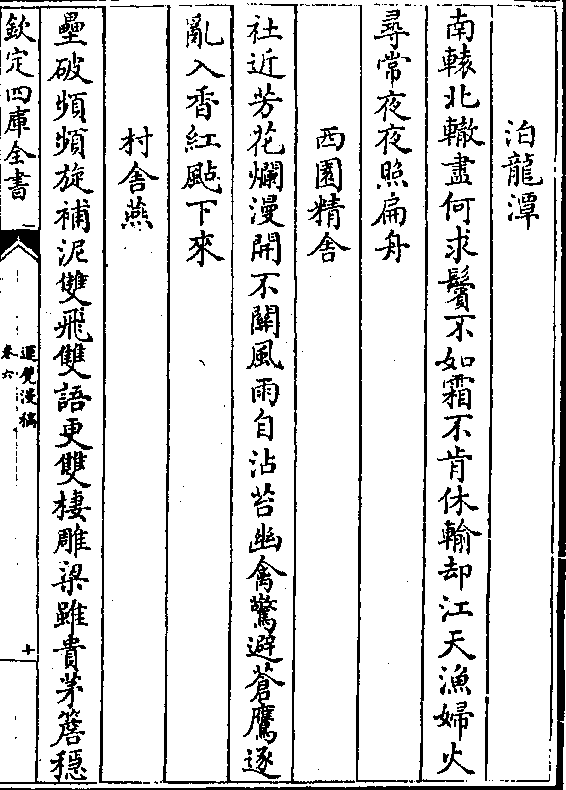 泊龍潭
南轅北轍盡何求鬢不如霜不肯休輸却江天漁婦火
尋常夜夜照扁舟
西園精舍
社近芳花爛漫開不關風雨自沾苔幽禽驚避蒼鷹逐
亂入香紅颭下來
村舍燕
壘破頻頻旋補泥雙飛雙語更雙棲雕梁雖貴茅簷穩
欽定四庫全書
卷六
十